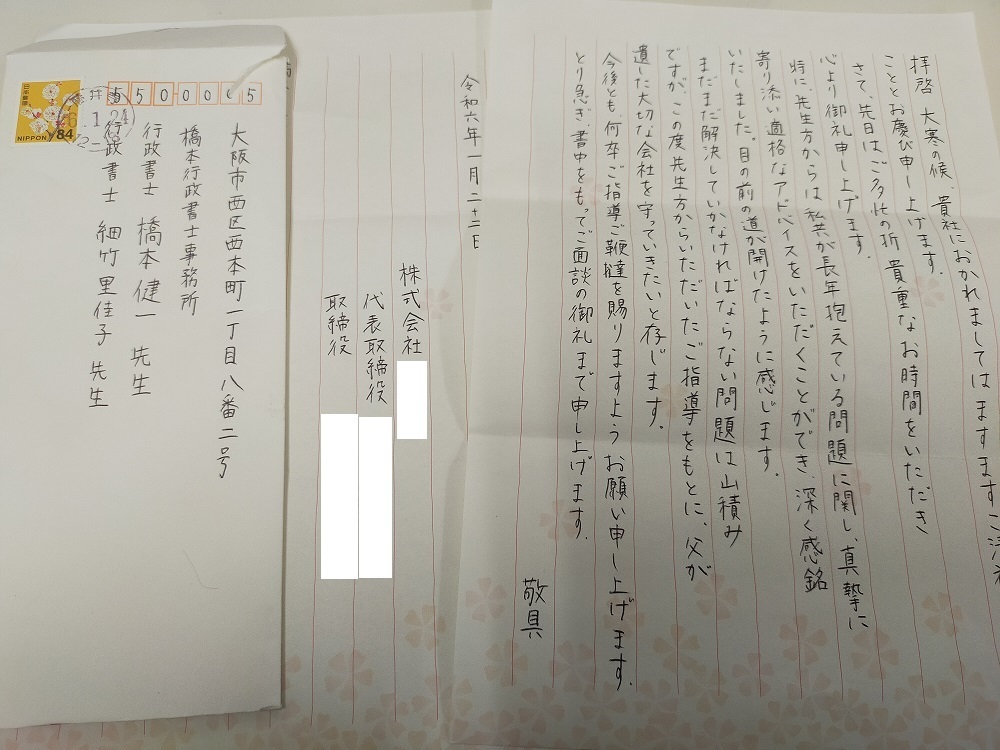 拝啓 大寒の候、貴社におかれましてはますますご清祥
こととお慶び申し上げます。
さて、先日はご多忙の折、貴重なお時間をいただき
心より御礼申し上げます。
特に、先生方からは私共が長年抱えている問題に関し、真摯に
寄り添い適格なアドバイスをいただくことができ、深く感銘
いたしました。目の前の道が開けたように感じます。
まだまだ解決していかなければならない問題は山積み
ですが、この度先生方からいただいたご指導をもとに、父が
遺した大切な会社を守っていきたいと存じます。
今後とも、何卒ご指導ご鞭撻を賜りますようお願い申し上げます。
とり急ぎ、書中をもってご面談の御礼まで申し上げます。
敬具
令和六年一月二十二日
株式会社
代表取締役
取締役
5500005
日本郵便
NIPPON 84
大阪市西区西本町一丁目八番二号
橋本行政書士事務所
行政書士 橋本健一 先生
行政書士 細竹里佳子 先生